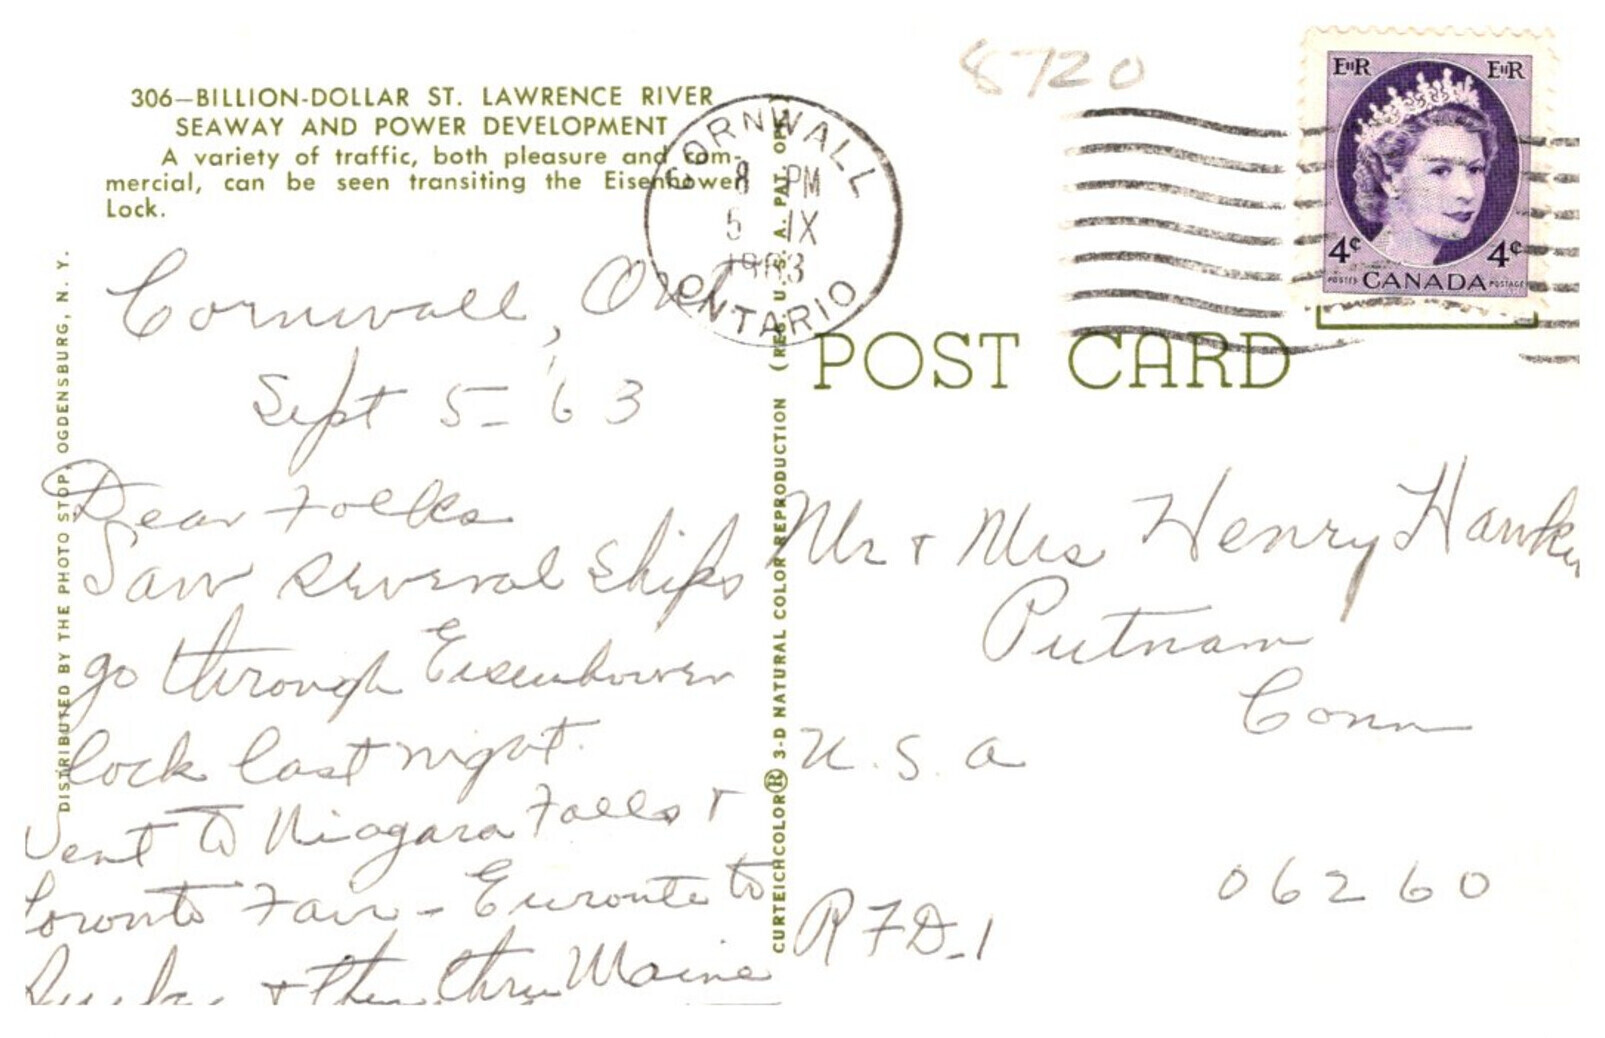 306—BILLION-DOLLAR ST. LAWRENCE RIVER
SEAWAY AND POWER DEVELOPMENT
A variety of traffic, both pleasure and com-
mercial, can be seen transiting the Eisenhower
Lock.
DISTRIBUTED BY THE PHOTO STOP, OGDENSBURG, N. Y.
Cornwall, Ont
Sept 5 - '63
Dear Folks
Saw several ships
go through Eisenhower
lock last night.
Went to Niagara Falls +
Toronto Fair - Enroute to
+ then thru Maine
CURTEICHCOLOR® 3-D NATURAL COLOR REPRODUCTION (REG. U. S. A. PAT. OFF.
8720
CORNWALL
8 PM
5 IX
1963
ONTARIO
EIIR EIIR
4¢ 4¢
POSTES CANADA POSTAGE
POST CARD
Mr + Mrs Henry
Putnam
Conn
U. S. A
06260
RFD-1